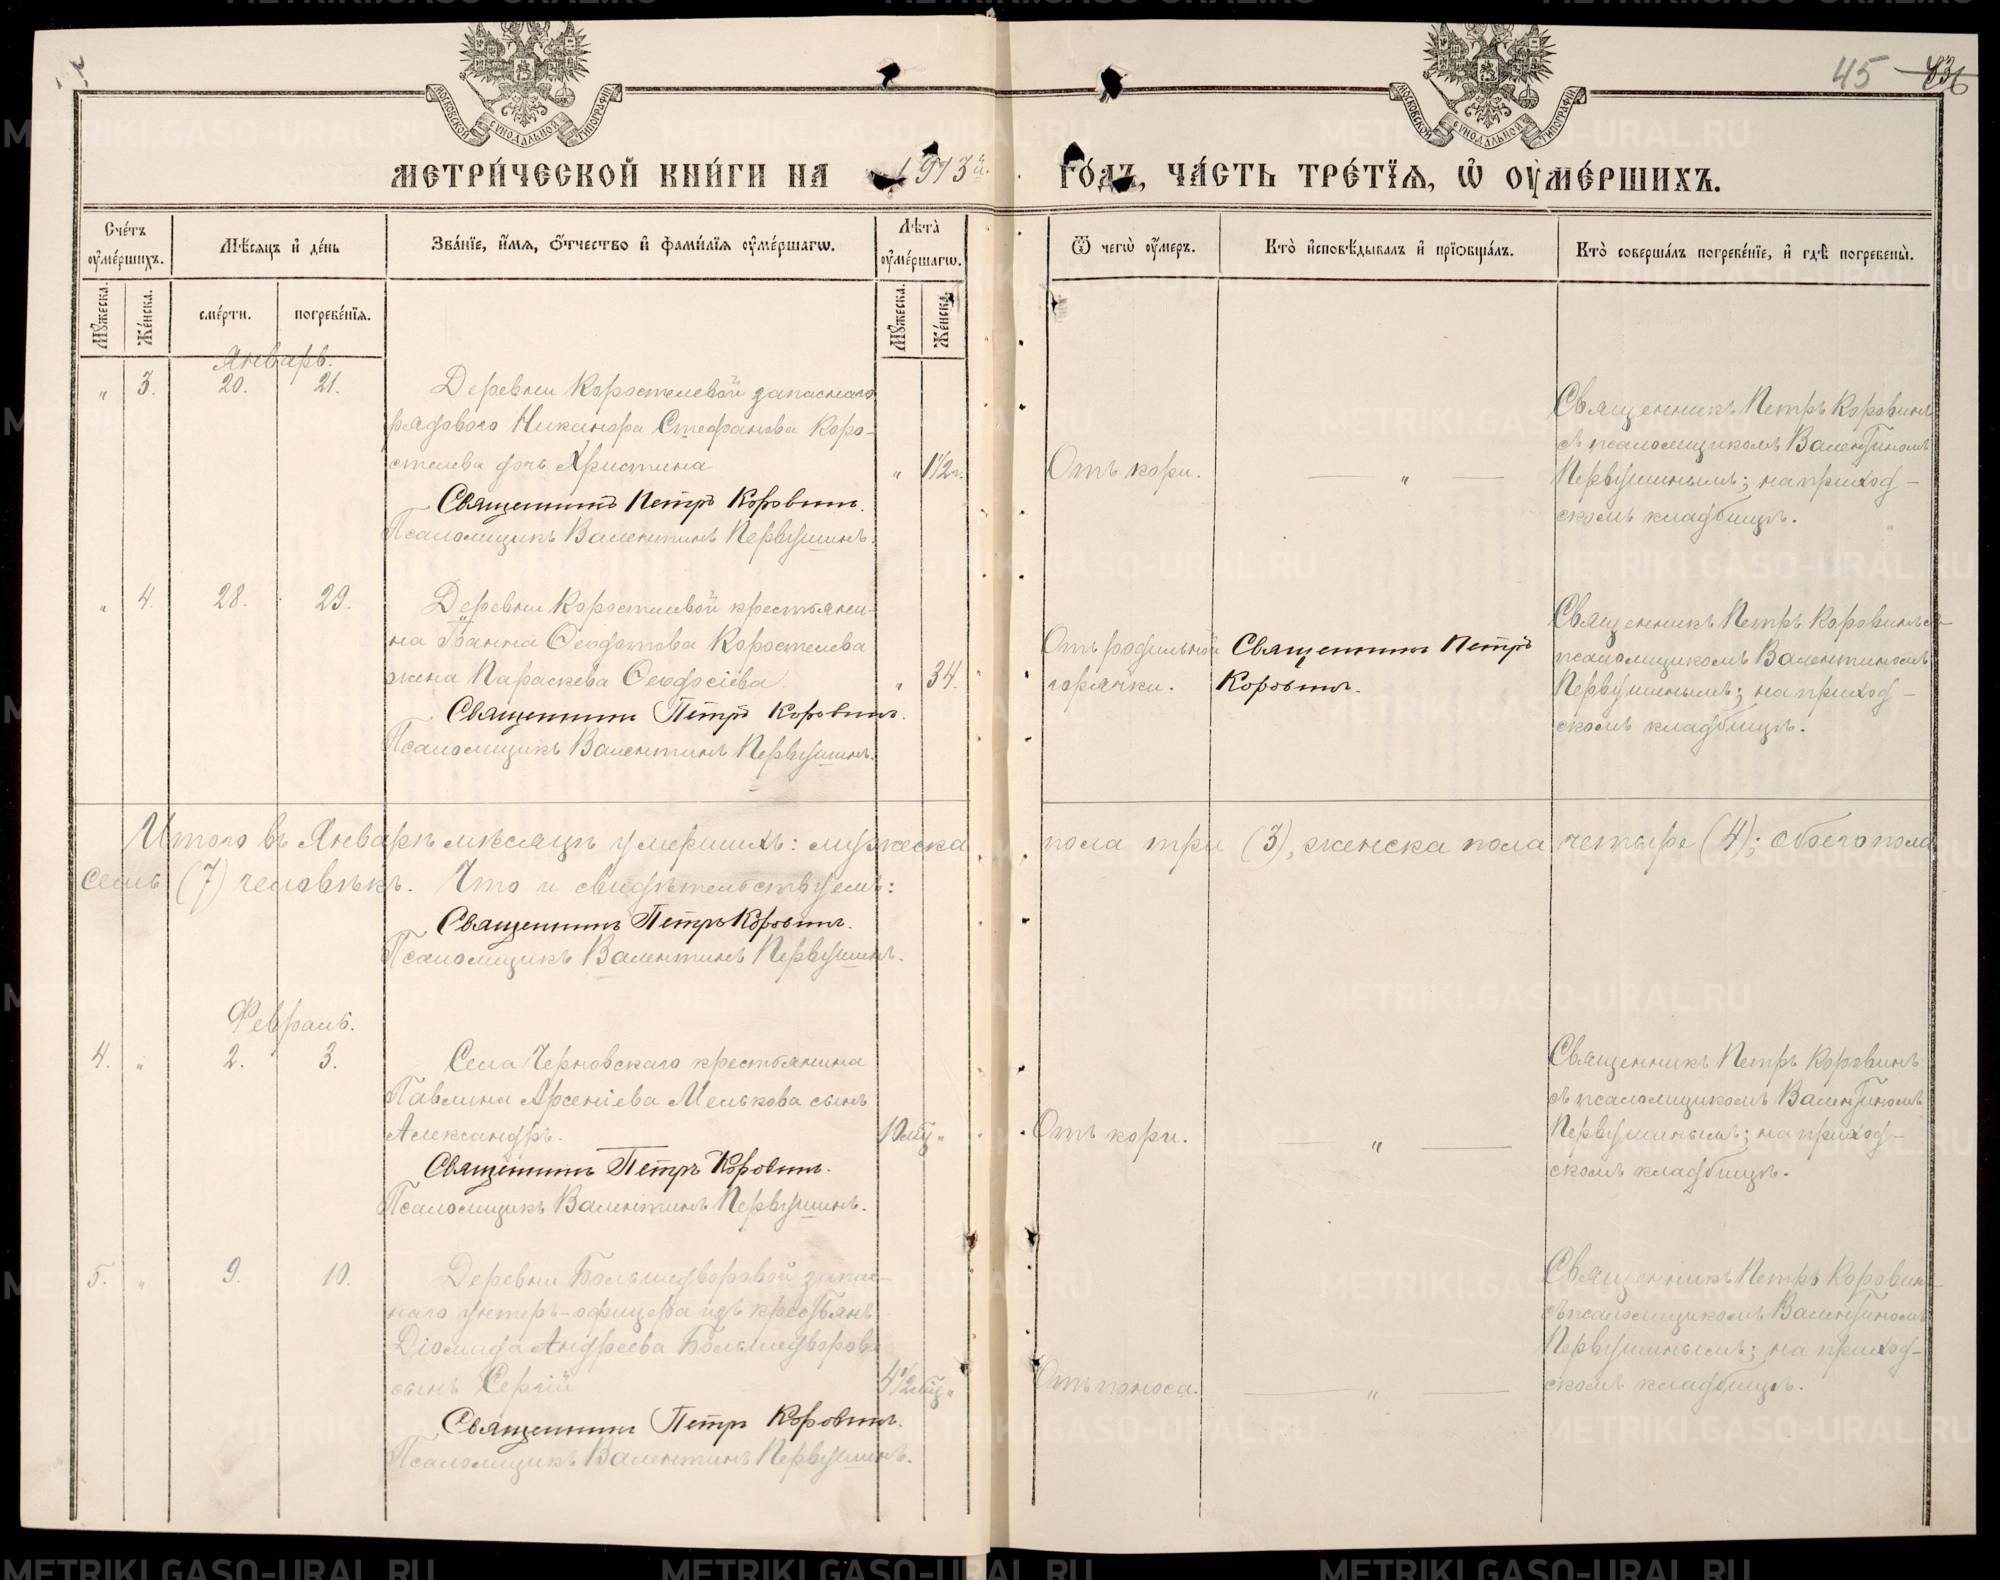 45 436
МОСКОВСКОЙ СѴНОДАЛЬНОЙ ТИПОГРАФІИ
МОСКОВСКОЙ СѴНОДАЛЬНОЙ ТИПОГРАФІИ
МЕТРИ́ЧЕСКОЙ КНИ́ГИ НА 1913й. ГО́ДЪ, ЧА́СТЬ ТРЕ́ТІЯ, Ѡ҆ ОУ҆МЕ́РШИХЪ.
Сче́тъ оу҆ме́ршихъ.
Мѣ́сяцъ и҆ де́нь
Зва́нїе, и҆́мя, ѻ҆́тчество и҆ фами́лїя оу҆ме́ршагѡ.
Лѣ́та оу҆ме́ршагѡ.
Ѿ чегѡ̀ оу҆́меръ.
Кто̀ и҆сповѣ́дывалъ и҆ прїѻбща́лъ.
Кто̀ соверша́лъ погребе́нїе, и҆ гдѣ̀ погребены̀.
Мꙋ́жеска.
Же́нска.
сме́рти.
погребе́нїя.
Мꙋ́жеска.
Же́нска.
Январь.
„ 3. 20. 21.
Деревни Коростелевой запаснаго
рядоваго Никанора Стефанова Коро-
стелева дочь Христина
„ 1½ г.
Священникъ Петръ Коровинъ.
Псаломщикъ Валентинъ Первушинъ.
Отъ кори.
— „ —
Священникъ Петръ Коровинъ
съ псаломщикомъ Валентиномъ
Первушинымъ; на приход-
скомъ кладбищѣ.
„ 4. 28. 29.
Деревни Коростелевой крестьяни-
на Іоанна Ѳеодотова Коростелева
жена Параскева Ѳеодосіева.
„ 34.
Священникъ Петръ Коровинъ.
Псаломщикъ Валентинъ Первушинъ.
Отъ родильной
горячки.
Священникъ Петръ
Коровинъ.
Священникъ Петръ Коровинъ съ
псаломщикомъ Валентиномъ
Первушинымъ; на приход-
скомъ кладбищѣ.
Итого въ Январѣ мѣсяцѣ умершихъ: мужеска пола три (3), женска пола четыре (4); обоего пола
семь (7) человѣкъ. Что и свидѣтельствуемъ:
Священникъ Петръ Коровинъ.
Псаломщикъ Валентинъ Первушинъ.
Февраль.
4. „ 2. 3.
Села Черновскаго крестьянина
Павлина Арсеніева Мелькова сынъ
Александръ.
10 мѣс. „
Священникъ Петръ Коровинъ.
Псаломщикъ Валентинъ Первушинъ.
Отъ кори.
— „ —
Священникъ Петръ Коровинъ
съ псаломщикомъ Валентиномъ
Первушинымъ; на приход-
скомъ кладбищѣ.
5. „ 9. 10.
Деревни Большедворовой запас-
наго унтеръ-офицера изъ крестьянъ
Діомида Андреева Большедворова
сынъ Сергій
4½ мѣс. „
Священникъ Петръ Коровинъ.
Псаломщикъ Валентинъ Первушинъ.
Отъ поноса.
— „ —
Священникъ Петръ Коровинъ
съ псаломщикомъ Валентиномъ
Первушинымъ; на приход-
скомъ кладбищѣ.
METRIKI.GASO-URAL.RU